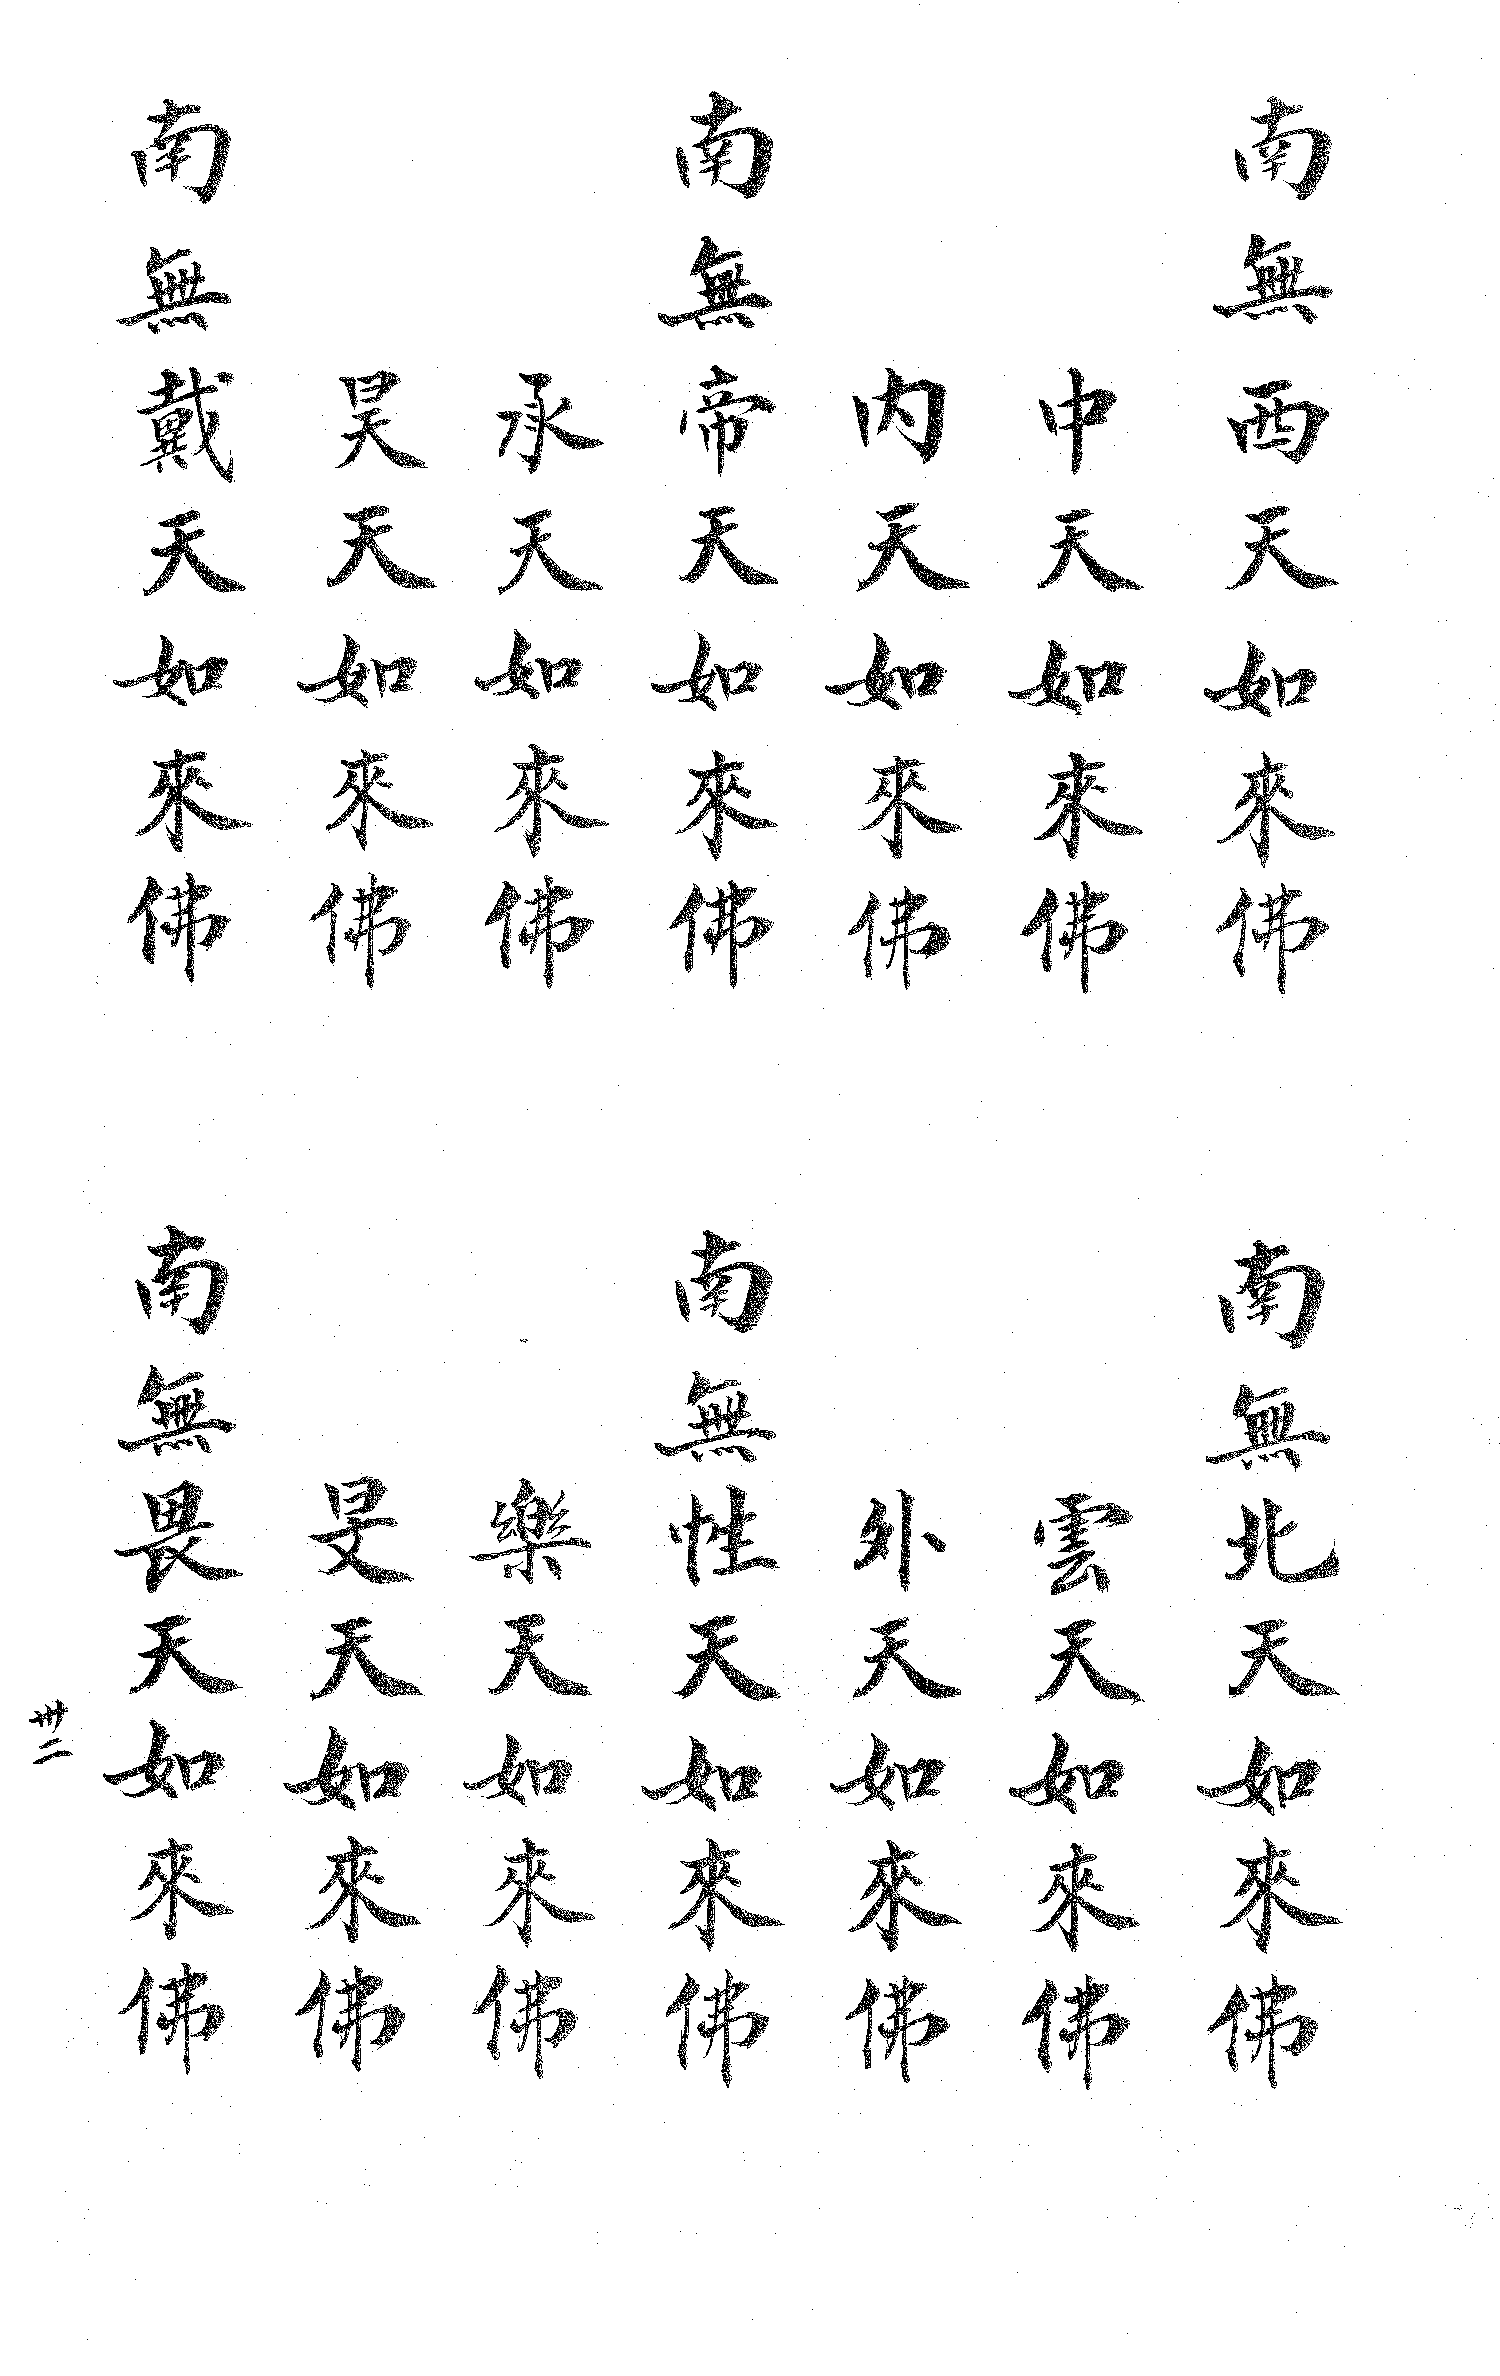 南無西天如來佛
中天如來佛
內天如來佛
南無帝天如來佛
承天如來佛
昊天如來佛
南無戴天如來佛
南無北天如來佛
雲天如來佛
外天如來佛
南無性天如來佛
樂天如來佛
旻天如來佛
南無畏天如來佛
卅二